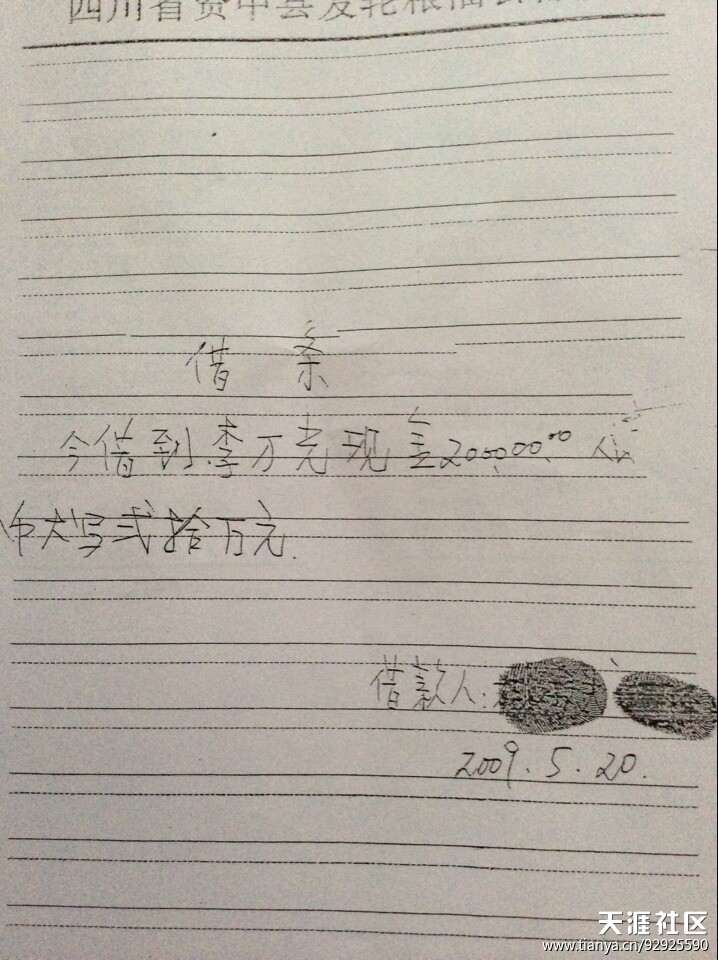 四川省资中县发轮粮油
借 条
今借到李万尧现金200000.00 人民
币大写弍拾万元.
借款人:
2009.5.20.
天涯社区
www.tianya.cn/92925590